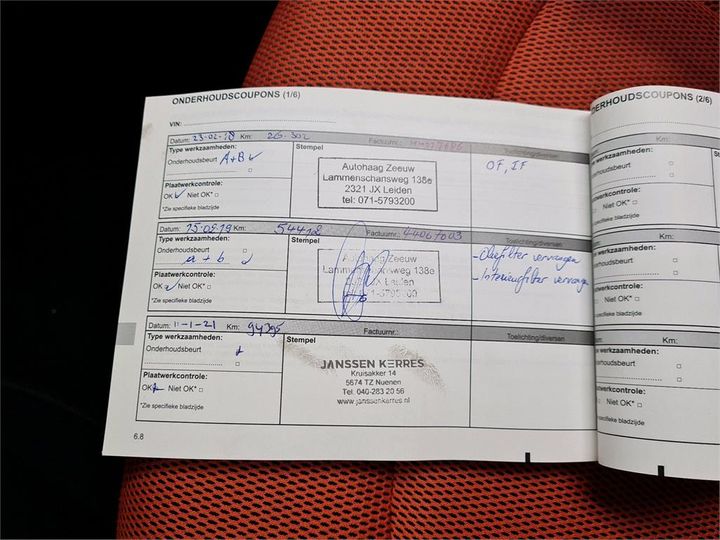 ONDERHOUDSCOUPONS (1/6)
VIN:
Datum: 23-02-18 Km: 26.302 Factuurnr.:
Type werkzaamheden:
Onderhoudsbeurt A+B
Plaatwerkcontrole:
OK Niet OK*
*Zie specifieke bladzijde
Stempel
Autohaag Zeeuw
Lammenschansweg 138e
2321 JX Leiden
tel: 071-5793200
Toelichting/diversen
OF, IF
Datum: 15-09-19 Km: 54418 Factuurnr.: 44067003
Type werkzaamheden:
Onderhoudsbeurt
a + b
Plaatwerkcontrole:
OK Niet OK*
*Zie specifieke bladzijde
Stempel
Autohaag Zeeuw
Lammenschansweg 138e
Leiden
Toelichting/diversen
- Oliefilter vervangen
- Interieurfilter vervangen
Datum: 11-1-21 Km: 94395 Factuurnr.:
Type werkzaamheden:
Onderhoudsbeurt
Plaatwerkcontrole:
OK Niet OK*
*Zie specifieke bladzijde
Stempel
JANSSEN KERRES
Kruisakker 14
5674 TZ Nuenen
Tel. 040-283 20 56
www.janssenkerres.nl
Toelichting/diversen
6.8
DERHOUDSCOUPONS (2/6)
Km:
werkzaamheden:
houdsbeurt
werkcontrole:
Niet OK*
specifieke bladzijde
Km:
werkzaamheden:
derhoudsbeurt
aatwerkcontrole:
Niet OK*
specifieke bladzijde
Km:
werkzaamheden:
Onderhoudsbeurt
Plaatwerkcontrole:
OK Niet OK*
*Zie specifieke bladzijde